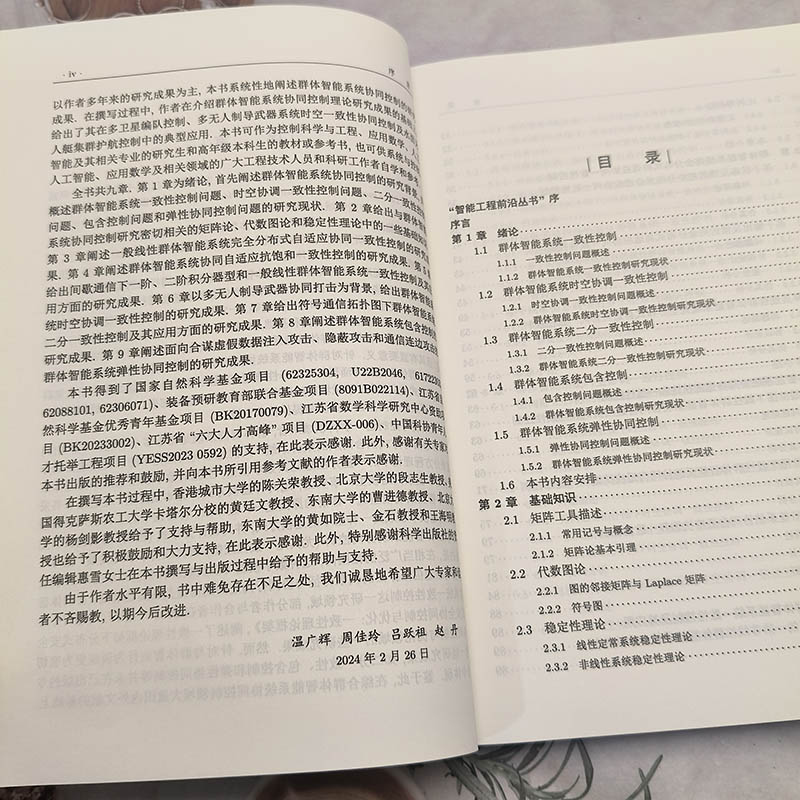 · iv ·
序
以作者多年来的研究成果为主, 本书系统性地阐述群体智能系统协同控制的
成果. 在撰写过程中, 作者在介绍群体智能系统协同控制理论研究成果的基
给出了其在多卫星编队控制、多无人制导武器系统时空一致性协同控制及水
人艇集群护航控制中的典型应用. 本书可作为控制科学与工程、应用数学、人
智能及其相关专业的研究生和高年级本科生的教材或参考书, 也可供系统与
人工智能、应用数学及相关领域的广大工程技术人员和科研工作者自学和参考.
全书共九章. 第 1 章为绪论, 首先阐述群体智能系统协同控制的研究背景,
概述群体智能系统一致性控制问题、时空协调一致性控制问题、二分一致性控制
问题、包含控制问题和弹性协同控制问题的研究现状. 第 2 章给出与群体智能
系统协同控制研究密切相关的矩阵论、代数图论和稳定性理论中的一些基础
第 3 章阐述一般线性群体智能系统完全分布式自适应协同一致性控制的研究成
果. 第 4 章阐述群体智能系统协同自适应抗饱和一致性控制的研究成果. 第 5
给出间歇通信下一阶、二阶积分器型和一般线性群体智能系统一致性控制及其
用方面的研究成果. 第 6 章以多无人制导武器协同打击为背景, 给出群体智能
统时空协调一致性控制的研究成果. 第 7 章给出符号通信拓扑图下群体智能系统
二分一致性控制及其应用方面的研究成果. 第 8 章阐述群体智能系统包含控制
研究成果. 第 9 章阐述面向合谋虚假数据注入攻击、隐蔽攻击和通信连边攻击
群体智能系统弹性协同控制的研究成果.
本书得到了国家自然科学基金项目 (62325304, U22B2046, 61722
62088101, 62306071)、装备预研教育部联合基金项目 (8091B022114)、江苏省
然科学基金优秀青年基金项目 (BK20170079)、江苏省数学科学研究中心资助
目 (BK20233002)、江苏省 “六大人才高峰” 项目 (DZXX-006)、中国科协青年
才托举工程项目 (YESS2023 0592) 的支持, 在此表示感谢. 此外, 感谢有关专家
本书出版的推荐和鼓励, 并向本书所引用参考文献的作者表示感谢.
在撰写本书过程中, 香港城市大学的陈关荣教授、北京大学的段志生教授、
国得克萨斯农工大学卡塔尔分校的黄廷文教授、东南大学的曹进德教授、北京
学的杨剑影教授给予了支持与帮助, 东南大学的黄如院士、金石教授和王海明
授也给予了积极鼓励和大力支持, 在此表示感谢. 此外, 特别感谢科学出版社的
任编辑惠雪女士在本书撰写与出版过程中给予的帮助与支持.
由于作者水平有限, 书中难免存在不足之处, 我们诚恳地希望广大专家和
者不吝赐教, 以期今后改进.
温广辉 周佳玲 吕跃祖 赵丹
2024 年 2 月 26 日
目 录
“智能工程前沿丛书” 序
序言
第 1 章 绪论
1.1 群体智能系统一致性控制
1.1.1 一致性控制问题概述
1.1.2 群体智能系统一致性控制研究现状
1.2 群体智能系统时空协调一致性控制
1.2.1 时空协调一致性控制问题概述
1.2.2 群体智能系统时空协调一致性控制研究现状
1.3 群体智能系统二分一致性控制
1.3.1 二分一致性控制问题概述
1.3.2 群体智能系统二分一致性控制研究现状
1.4 群体智能系统包含控制
1.4.1 包含控制问题概述
1.4.2 群体智能系统包含控制研究现状
1.5 群体智能系统弹性协同控制
1.5.1 弹性协同控制问题概述
1.5.2 群体智能系统弹性协同控制研究现状
1.6 本书内容安排
第 2 章 基础知识
2.1 矩阵工具描述
2.1.1 常用记号与概念
2.1.2 矩阵论基本引理
2.2 代数图论
2.2.1 图的邻接矩阵与 Laplace 矩阵
2.2.2 符号图
2.3 稳定性理论
2.3.1 线性定常系统稳定性理论
2.3.2 非线性系统稳定性理论